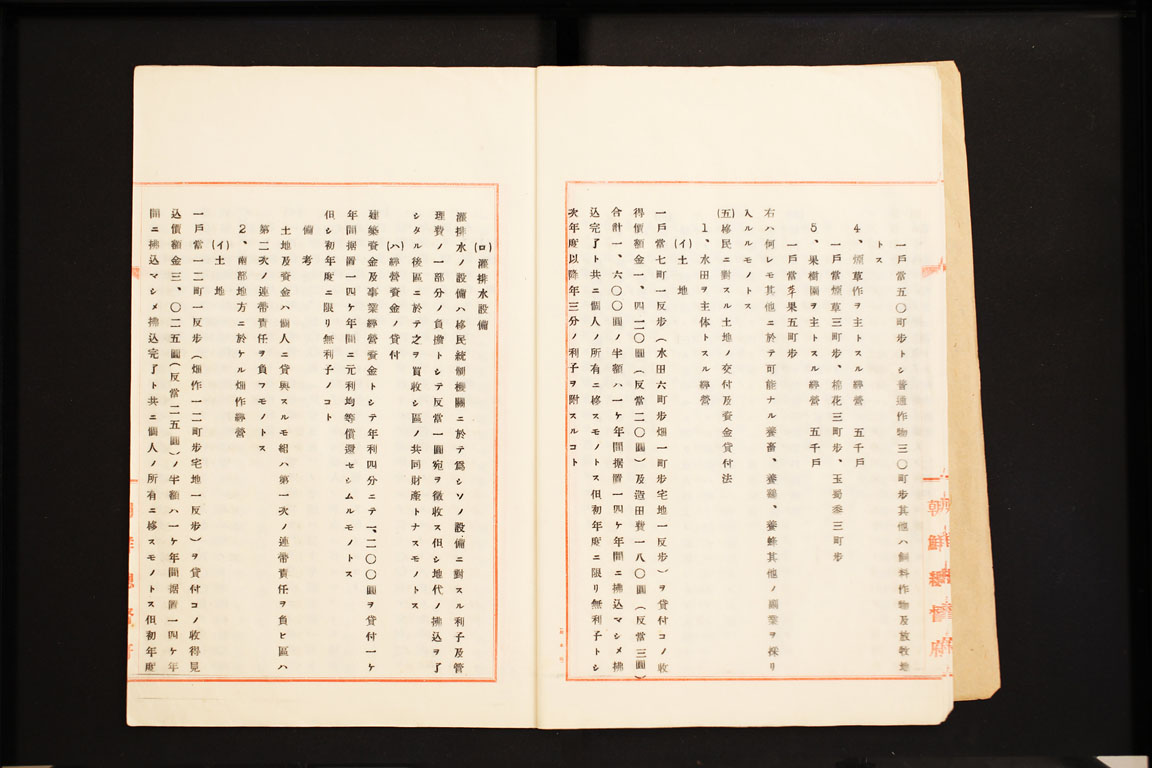 一戶當五〇町步トシ普通作物三〇町步其他ハ飼料作物及放牧地
トス
4、煙草作ヲ主トスル經營 五千戶
一戶當煙草三町步、棉花三町步、玉蜀黍三町步
5、果樹園ヲ主トスル經營 五千戶
一戶當苹果五町步
右ハ何レモ其他ニ於テ可能ナル養畜、養鷄、養蜂其他ノ副業ヲ採リ
入ルルモノトス
(五)移民ニ對スル土地ノ交付及資金貸付法
1、水田ヲ主体トスル經營
(イ)土 地
一戶當七町一反步(水田六町步畑一町步宅地一反步)ヲ貸付コノ收
得價額金一、四二〇圓(反當二〇圓)及造田費一八〇圓(反當三圓)
合計一、六〇〇圓ノ半額ハ一ケ年間据置一四ケ年間ニ拂込マシメ拂
込完了ト共ニ個人ノ所有ニ移スモノトス但初年度ニ限リ無利子トシ
次年度以降年三分ノ利子ヲ附スルコト
朝鮮總督府
(ロ)灌排水設備
灌排水ノ設備ハ移民統制機關ニ於テ爲シソノ設備ニ對スル利子及管
理費ノ一部分ノ負擔トシテ反當一圓宛ヲ徵收ス但シ地代ノ拂込ヲ了
シタル後區ニ於テ之ヲ買收シ區ノ共同財產トナスモノトス
(ハ)經營資金ノ貸付
建築資金及事業經營資金トシテ年利四分ニテ一、二〇〇圓ヲ貸付一ケ
年間据置一四ケ年間ニ元利均等償還セシムルモノトス
但シ初年度ニ限リ無利子ノコト
備 考
土地及資金ハ個人ニ貸與スルモ組ハ第一次ノ連帶責任ヲ負ヒ區ハ
第二次ノ連帶責任ヲ負フモノトス
2、南部地方ニ於ケル畑作經營
(イ)土 地
一戶當一二町一反步(畑作一二町步宅地一反步)ヲ貸付コノ收得見
込價額金三、〇二五圓(反當二五圓)ノ半額ハ一ケ年間据置一四ケ年
間ニ拂込マシメ拂込完了ト共ニ個人ノ所有ニ移スモノトス但初年度